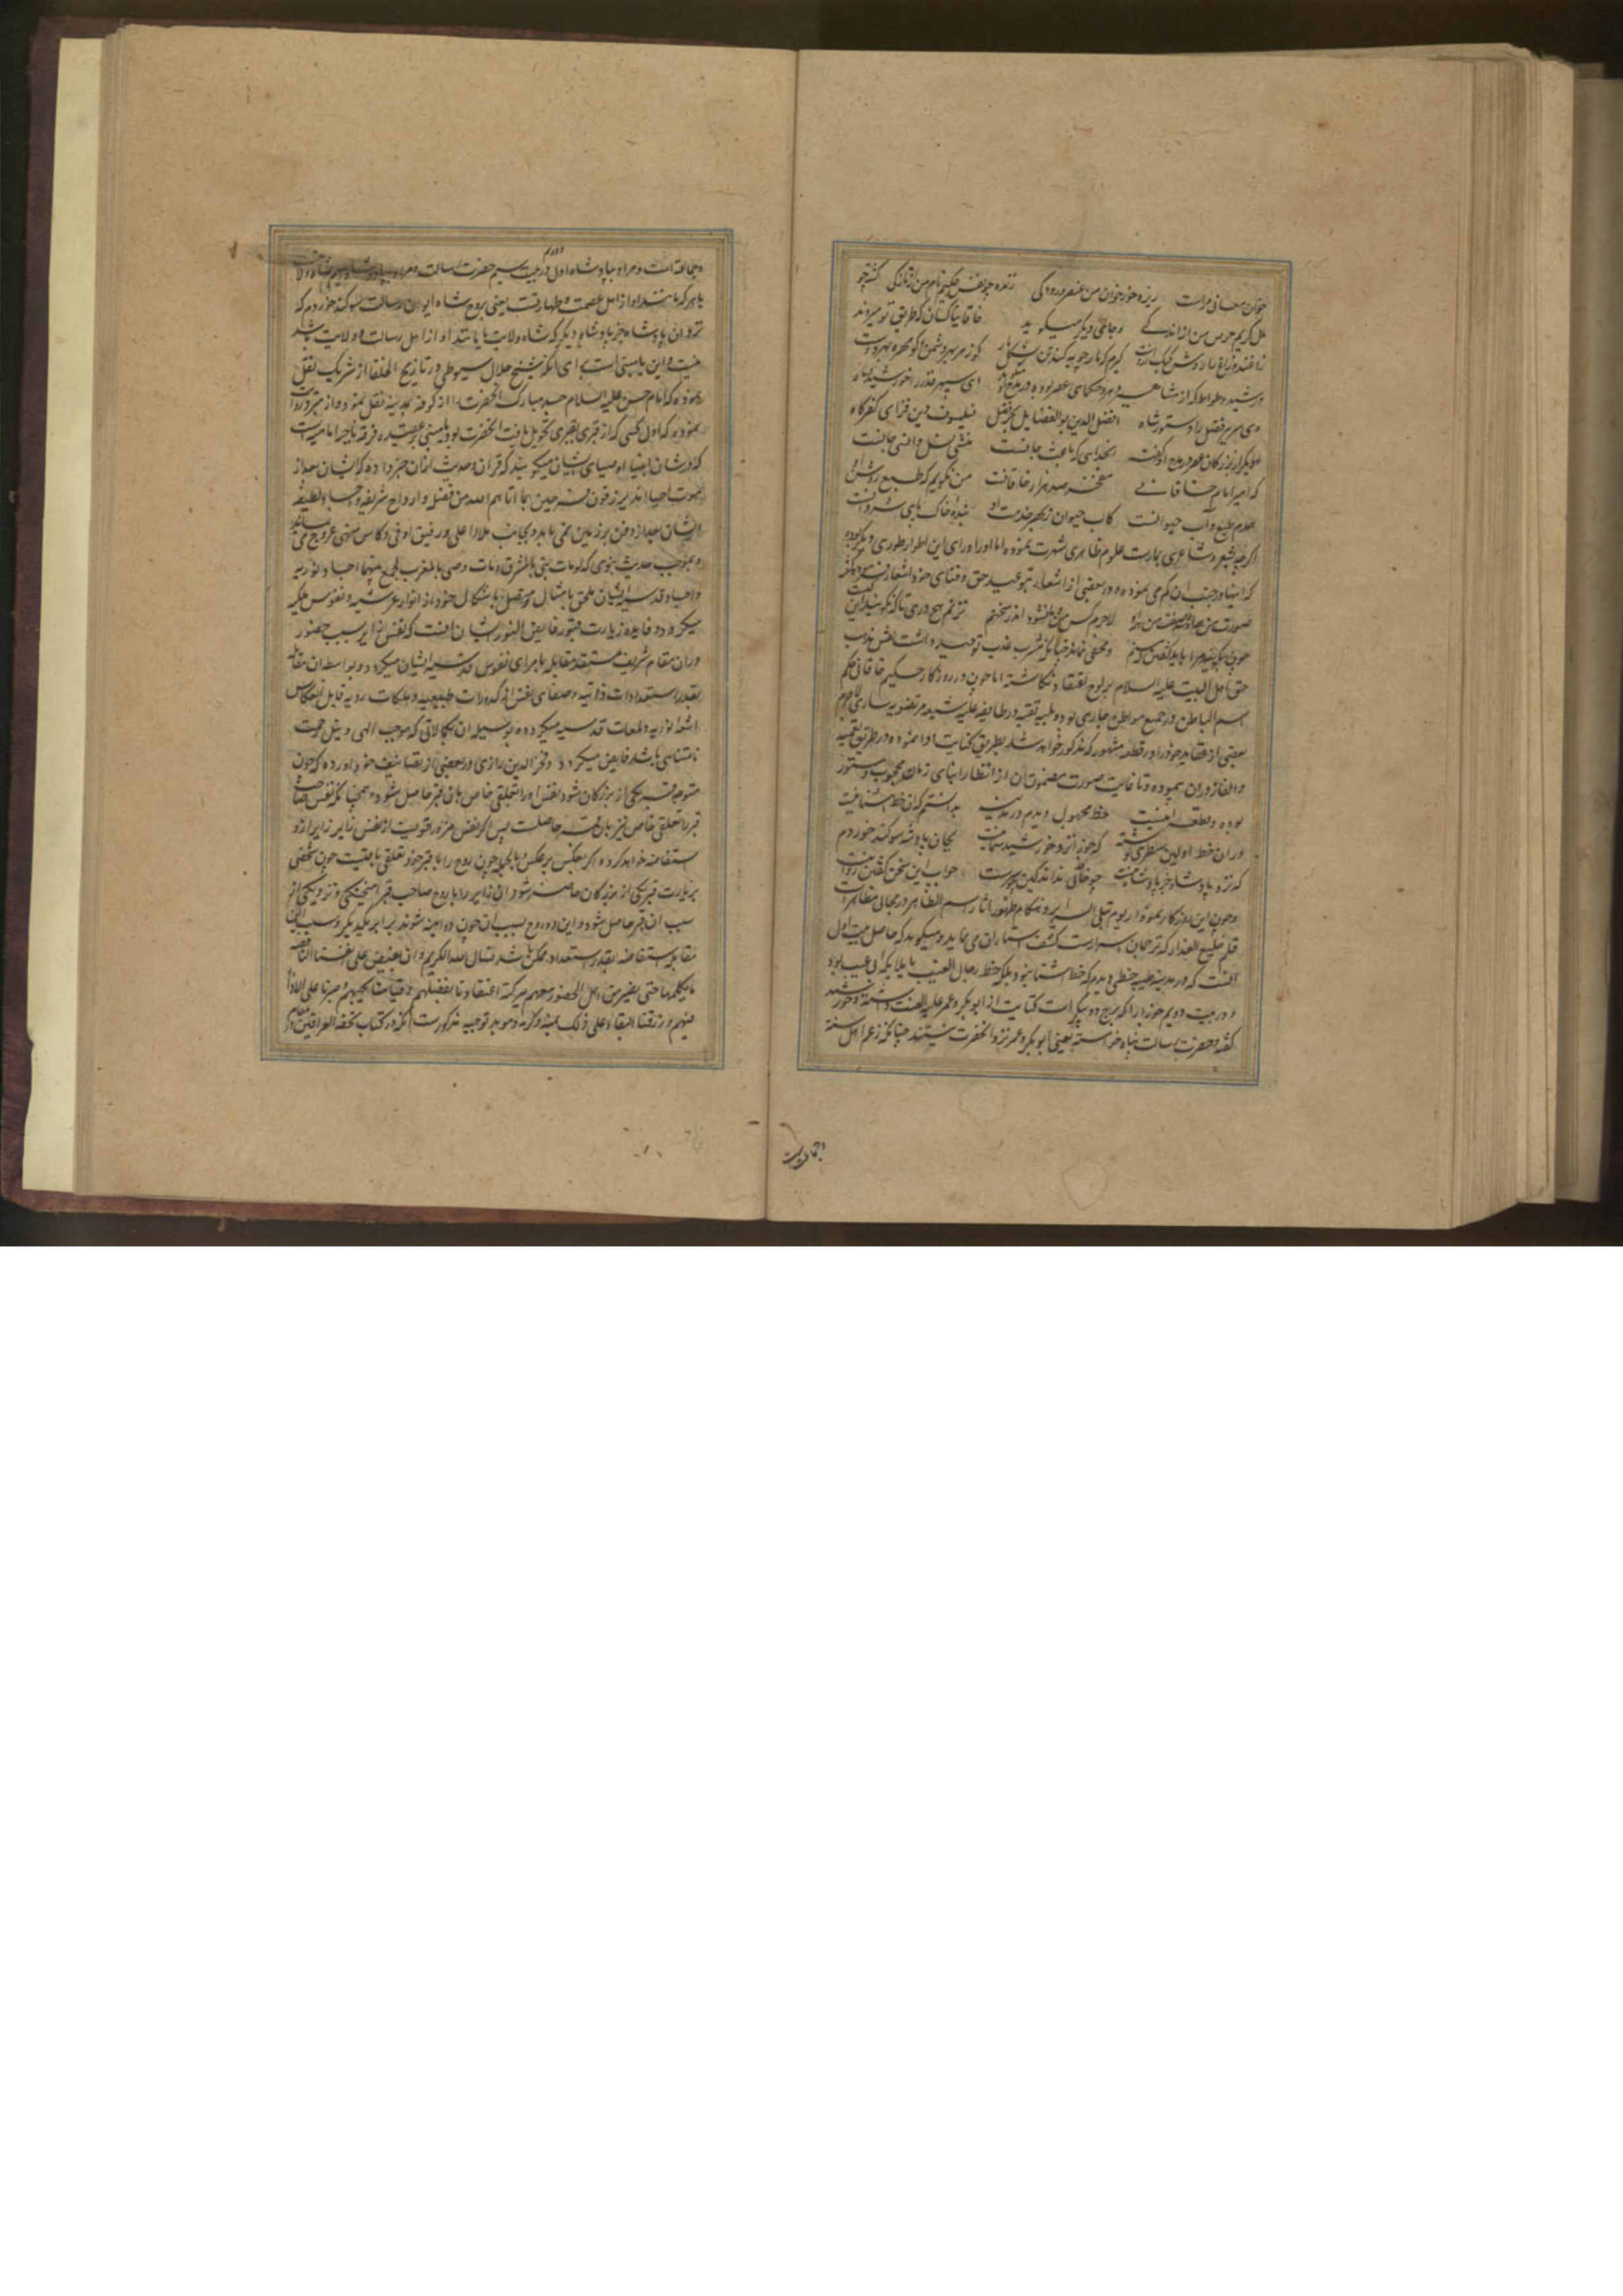 خوان معانی مراست ریزه خور خوان من عنصری و رودکی زنده چو نفس حکیم نام من از تازگی کشته چو
مال کریم حرص من از اندکی و جائی دیگر میگوید خاقانیا کسان که طریق تو میروند
زاغند و زاغ را روش کبک آرزوست کیرم که مارچوبه کند تن بشکل مار کو زهر بهر دشمن و کو مهره بهر دوست
و رشید وطواط که از مشاهیر و حکمای عصر بوده در مدح او ای سپهر قدر را خورشید و ماه
وی سریر فضل را دستور و شاه افضل الدین بوالفضایل بحر فضل فیلسوف دین فزای کفر کاه
و دیگر از بزرگان عصر در مدح او گفته
که امیر امام خاقانی مفخر صد هزار خاقانست من نگویم که طبع روشن او
کاب حیوان ز بهر خدمت او بنده خاک پای شروانست
اگرچه بشعر و شاعری و مهارت علوم ظاهری شهرت نموده اما او را ورای این اطوار طوری دیگر بوده
که اینها در جنب آن کم می نموده و در بعضی از اشعار
صورت من همه او شد صفت من همه او لاجرم کس من و ما نشنود اندر سخنم نزنم هیچ دری تا که نگویند آن کیست
چون بگویند مرا باید گفتن که منم و مخفی نماند
حق اهل البیت علیه السلام بر لوح اعتقاد نگاشته اما چون در روزگار حکیم خاقانی حکم
اسم الباطن در جمیع مواطن جاری بوده و تقیه در طایفه علیه شیعه مرتضویه ساری لاجرم
بعضی از عقاید خود را در قطعه مشهور که مذکور خواهد شد بطریق کنایت ادا نموده و در طریق تعمیه
و الغاز در آن پیموده و تا غایت صورت مضمون آن از انظار ابنای زمان محجوب و مستور
بوده و قطعه اینست خطی مجهول دیدم در مدینه بدانستم که آن خط آشنا نیست
در آن خط اولین سطری نوشته که جوزا نزد خورشید سما نیست بجان پادشه سوگند خوردم
که نزد پادشا جز پادشا نیست چو خاقانی نداند کین چه رمزست جواب این سخن گفتن روا نیست
و چون این روزگار نمودار یوم تبلی السرایر و هنگام ظهور آثار اسم الظاهر در مجالی مظاهر است
قلم خلیع العذار که ترجمان اسرارست کشف استار آن می نماید و میگوید که حاصل بیت اول
آنست که در مدینه طیبه خطی دیدم که خط آشنا نبود بلکه خط رجال الغیب یا ملایکه لی عیب بود
و در بیت دویم جوزا را که برج دو پیکر است کنایت از ابوبکر و عمر علیه العنت داشته و خورشید
گفته و حضرت رسالت پناه خواسته یعنی ابوبکر و عمر نزد آنحضرت نیستند چنانکه زعم اهل سنت
و جماعت است
و جماعة است و مراد بپادشاه اول در بیت سیم حضرت رسالت و مراد بپادشاه دویم شاه ولایت
یا هر که باشد او از اهل عصمت و طهارت یعنی بروح شاه ایوان رسالت سوگند خوردم که
نزد آن پادشاه جز پادشاه دیگر که شاه ولایت یا باشد او از اهل رسالت و ولایت باشد
نیست و این یا مبنی است برای آنکه شیخ جلال سیوطی در تاریخ الخلفا از شریک نقل
نموده که امام حسن علیه السلام جسد مبارک آنحضرت را از کوفه بمدینه نقل نمود و از مبرد روایت
نموده که اول کسی که از قبری بقبری تحویل یافت آنحضرت بود یا مبنی بر عقیده فرقه ناجیه امامیه است
که در شان انبیاء و اوصیای ایشان میگویند که قرآن و حدیث از آن خبر داده که ایشان بعد از
موت احیا اند یرزقون فرحین بما آتاهم الله من فضله و ارواح شریفه و اجساد لطیفه
ایشان بعد از دفن بر زمین نمی ماند و بجانب ملاء اعلی و رفیق اوفی و کاس منهی عروج می نمایند
و بموجب حدیث نبوی که لو مات نبی بالمشرق و مات وصی بالمغرب لجمع بینهما اجساد نوریه
و اجساد قدسیه ایشان ملحق بامثال و متصل باشکال خود از انوار عرشیه و نفوس ملکیه
میگردد و فایده زیارت قبور فایض النور ایشان آنست که نفس زایر بسبب حضور
در آن مقام شریف مستعد مقابله با مرآی نفوس قدسیه ایشان میگردد و بواسطه آن مقابله
بقدر استعدادات ذاتیه و صفای نفس از کدورات طبیعیه و ملکات ردیه قابل انعکاس
اشعه انوار و لمعات قدسیه میگردد و بوسیله آن کمالاتی که موجب الهی و نیل رحمت
نامتناهی باشد فایض میگردد و فخر الدین رازی در بعضی از تصانیف خود آورده که چون
متوجه قبر یکی از بزرگان شود نفس او را تعلقی خاص بآن قبر حاصل شود و همچنانکه نفس صاحب
قبر را تعلقی خاص نیز بآن قبر حاصلست پس اگر نفس مزور اقویست از نفس زایر زایر ازو
استفاضه خواهد کرد و اگر بعکس بر عکس و بالجمله چون روح را با قبر خود تعلقی باقیست چون شخصی
بزیارت قبر یکی از بزرگان حاضر شود آن زایر را با روح صاحب قبر آمیختگی و نزدیکی از
سبب آن قبر حاصل شود و این دو روح بسبب آن چون دو آینه شوند برابر یکدیگر و بسبب این
مقابله استفاضه بقدر استعداد ممکن باشد نسال الله الکریم و ان یفیض علی انفسنا الناقصه
ما یکملها حتی یصیر من اهل الحضور معهم ببرکة اعتقادنا بفضلهم و
منهم و رزقنا البقاء علی ذلک بمنه و کرمه و موید توجیه مذکورست آنکه در کتاب تحفة العراقین در مقام